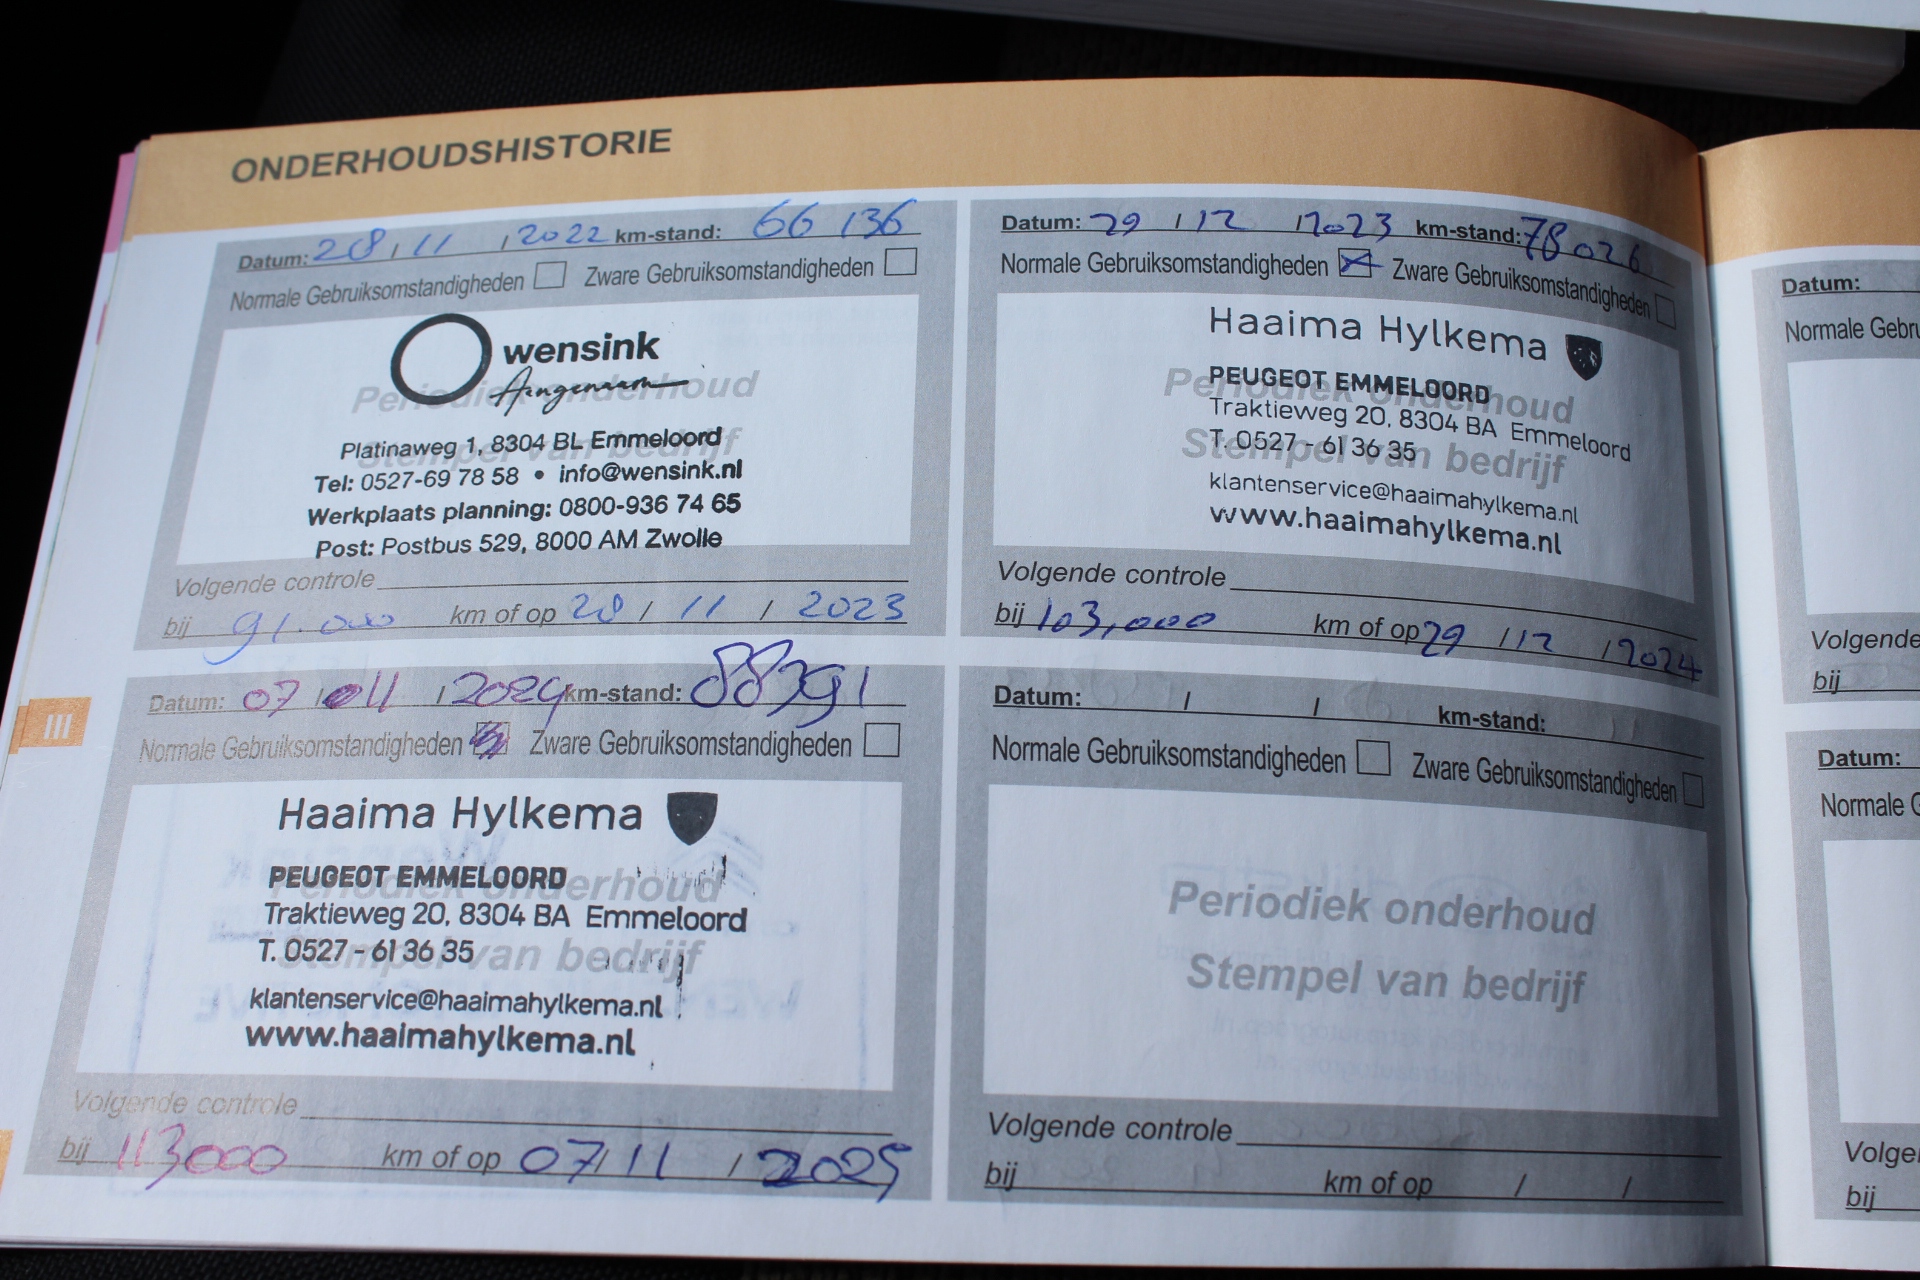 ONDERHOUDSHISTORIE
Datum: 28 / 11 / 2022 km-stand: 66 136
Normale Gebruiksomstandigheden Zware Gebruiksomstandigheden
wensink
Aangenaam
Periodiek onderhoud
Stempel van bedrijf
Platinaweg 1, 8304 BL Emmeloord
Tel: 0527-69 78 58 • info@wensink.nl
Werkplaats planning: 0800-936 74 65
Post: Postbus 529, 8000 AM Zwolle
Volgende controle
bij 91.000 km of op 28 / 11 / 2023
Datum: 29 / 12 / 2023 km-stand: 78026
Normale Gebruiksomstandigheden Zware Gebruiksomstandigheden
Haaima Hylkema
PEUGEOT EMMELOORD
Periodiek onderhoud
Traktieweg 20, 8304 BA Emmeloord
T. 0527 - 61 36 35
Stempel van bedrijf
klantenservice@haaimahylkema.nl
www.haaimahylkema.nl
Volgende controle
bij 103,000 km of op 29 / 12 / 2024
Datum: 07 / 11 / 2024 km-stand: 88391
Normale Gebruiksomstandigheden Zware Gebruiksomstandigheden
Haaima Hylkema
PEUGEOT EMMELOORD
Periodiek onderhoud
Traktieweg 20, 8304 BA Emmeloord
T. 0527 - 61 36 35
Stempel van bedrijf
klantenservice@haaimahylkema.nl
www.haaimahylkema.nl
Volgende controle
bij 113000 km of op 07 / 11 / 2025
Datum: / / km-stand:
Normale Gebruiksomstandigheden Zware Gebruiksomstandigheden
Periodiek onderhoud
Stempel van bedrijf
Volgende controle
bij km of op / /
III
Datum:
Normale Gebru
Volgende
bij
Datum:
Normale G
Volge
bij